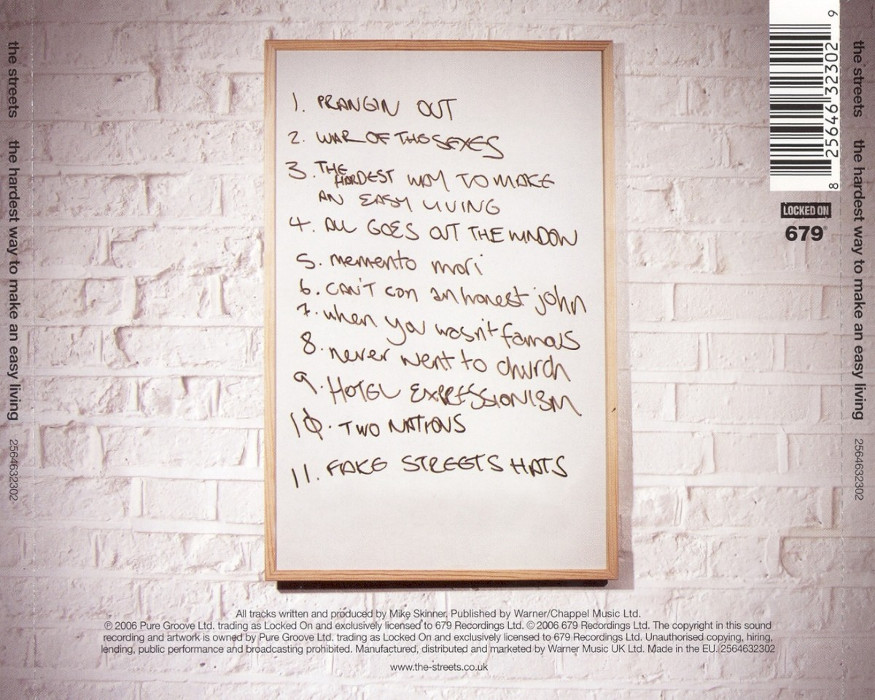 the streets   the hardest way to make an easy living   2564632302
1. PRANGIN OUT
2. WAR OF THE SEXES
3. THE HARDEST WAY TO MAKE
AN EASY LIVING
4. ALL GOES OUT THE WINDOW
5. memento mori
6. CAN'T con an honest john
7. when you wasn't famous
8. never went to church
9. HOTEL EXPRESSIONISM
10. TWO NATIONS
11. FAKE STREETS HATS
8 25646 32302 9
LOCKED ON
679
the streets   the hardest way to make an easy living   2564632302
All tracks written and produced by Mike Skinner, Published by Warner/Chappel Music Ltd.
℗ 2006 Pure Groove Ltd. trading as Locked On and exclusively licensed to 679 Recordings Ltd. © 2006 679 Recordings Ltd. The copyright in this sound
recording and artwork is owned by Pure Groove Ltd. trading as Locked On and exclusively licensed to 679 Recordings Ltd. Unauthorised copying, hiring,
lending, public performance and broadcasting prohibited. Manufactured, distributed and marketed by Warner Music UK Ltd. Made in the EU. 2564632302
www.the-streets.co.uk